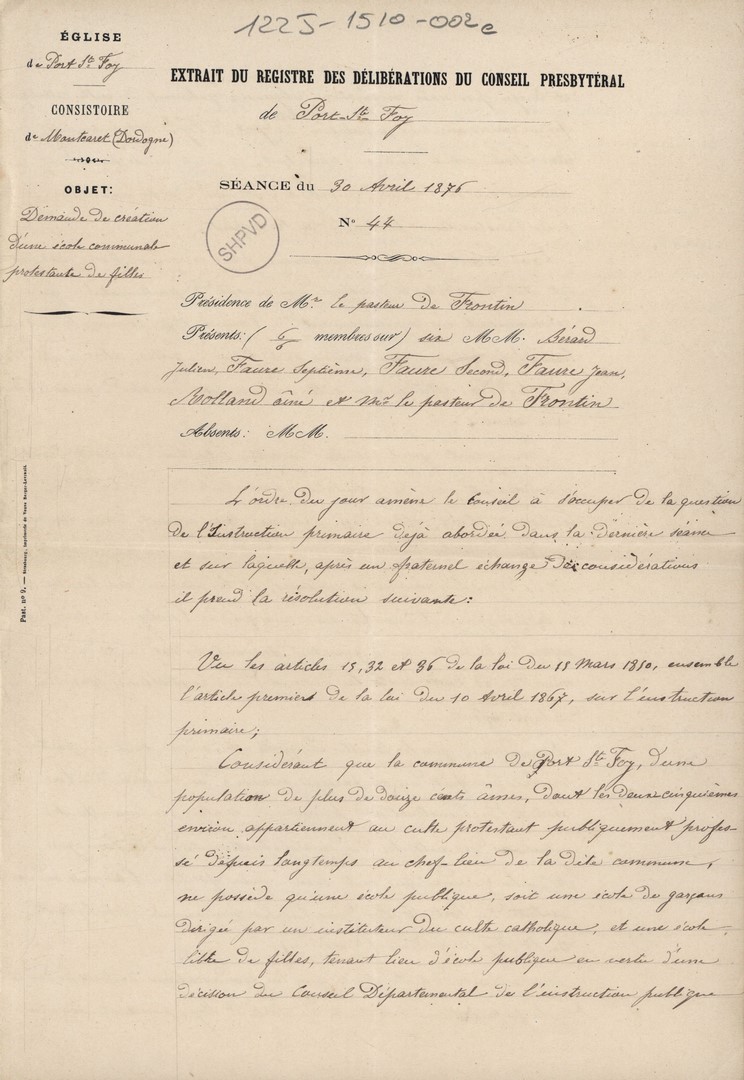 122J-1510-002e
ÉGLISE
de Port Ste Foy
CONSISTOIRE
de Montcaret (Dordogne)
OBJET:
Demande de création
d'une école communale
protestante de filles
EXTRAIT DU REGISTRE DES DÉLIBÉRATIONS DU CONSEIL PRESBYTÉRAL
de Port-Ste Foy
SÉANCE du 30 Avril 1876
N° 44
SHPVD
Présidence de Mr le pasteur de Frontin
Présents: ( 6/6 membres sur) six MM. Bérard
Julien, Faure Septième, Faure Second, Faure Jean,
Rolland aîné et Mr le pasteur de Frontin
Absents: MM.
Past. n° 9. — Strasbourg, imprimerie de Veuve Berger-Levrault.
L'ordre du jour amène le Conseil à s'occuper de la question
de l'Instruction primaire déjà abordée dans la dernière séance
et sur laquelle, après un fraternel échange de considérations
il prend la résolution suivante:
Vu les articles 15, 32 et 36 de la loi du 15 Mars 1850, ensemble
l'article premier de la loi du 10 Avril 1867, sur l'instruction
primaire;
Considérant que la commune de Port Ste Foy, d'une
population de plus de douze cents âmes, dont les deux cinquièmes
environ appartiennent au culte protestant publiquement profes-
sé depuis longtemps au chef-lieu de la dite commune,
ne possède qu'une école publique, soit une école de garçons
dirigée par un instituteur du culte catholique, et une école
libre de filles, tenant lieu d'école publique en vertu d'une
décision du Conseil Départemental de l'instruction publique